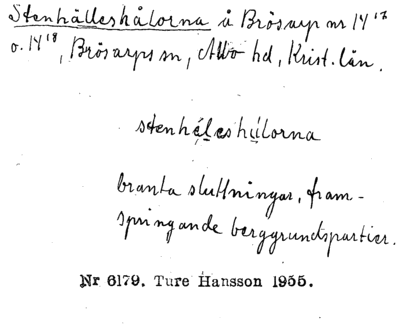 Stenhålleshålorna å Brösarp nr 14¹⁷
o. 14¹⁸, Brösarps sn, Albo hd, Krist. län.
stenhéleshúlorna
branta sluttningar, fram-
springande berggrundspartier.
Nr 6179. Ture Hansson 1955.